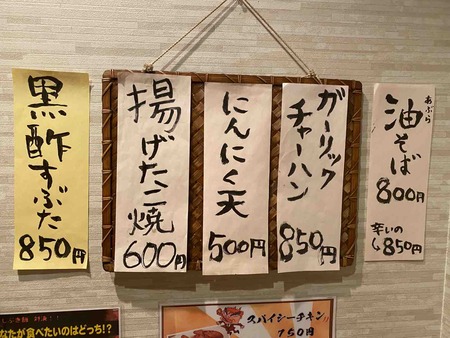 黒酢すぶた
850円
揚げたこ焼
600円
にんにく天
500円
ガーリック
チャーハン
850円
あぶら
油そば
800円
辛いの
850円
なたが食べたいのはどっち!?
スパイシーチキン
150円